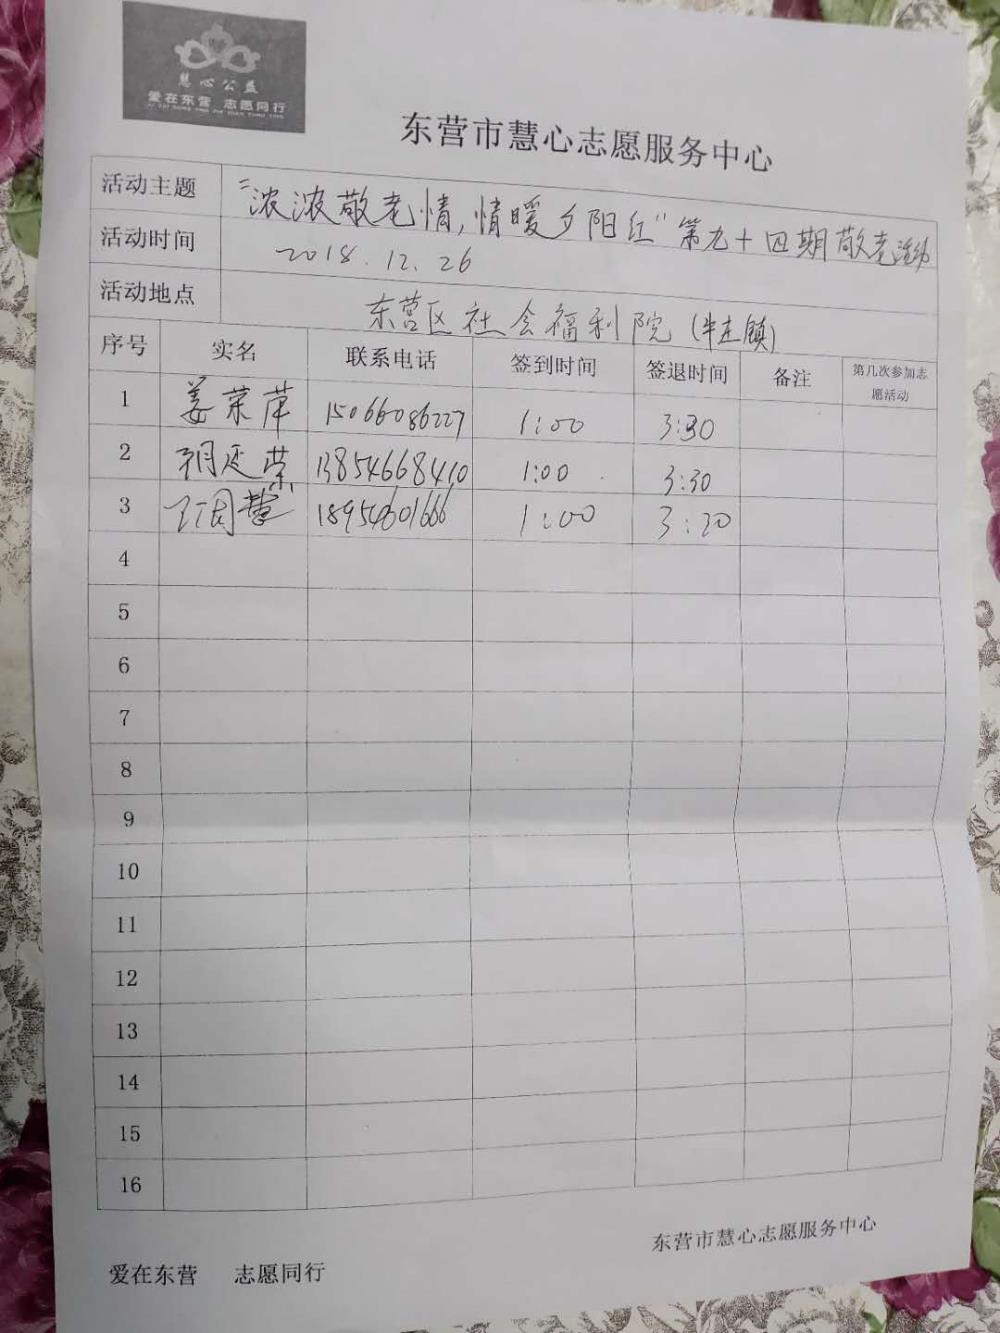 慧心公益
爱在东营 志愿同行
东营市慧心志愿服务中心
活动主题 “浓浓敬老情,情暖夕阳红”第九十四期敬老活动
活动时间 2018.12.26
活动地点 东营区社会福利院(牛庄镇)
序号 实名 联系电话 签到时间 签退时间 备注 第几次参加志愿活动
1 姜荣萍 15066086227 1:00 3:30
2 延荣 13854668410 1:00 3:30
3 慧 18954601666 1:00 3:20
4
5
6
7
8
9
10
11
12
13
14
15
16
东营市慧心志愿服务中心
爱在东营 志愿同行